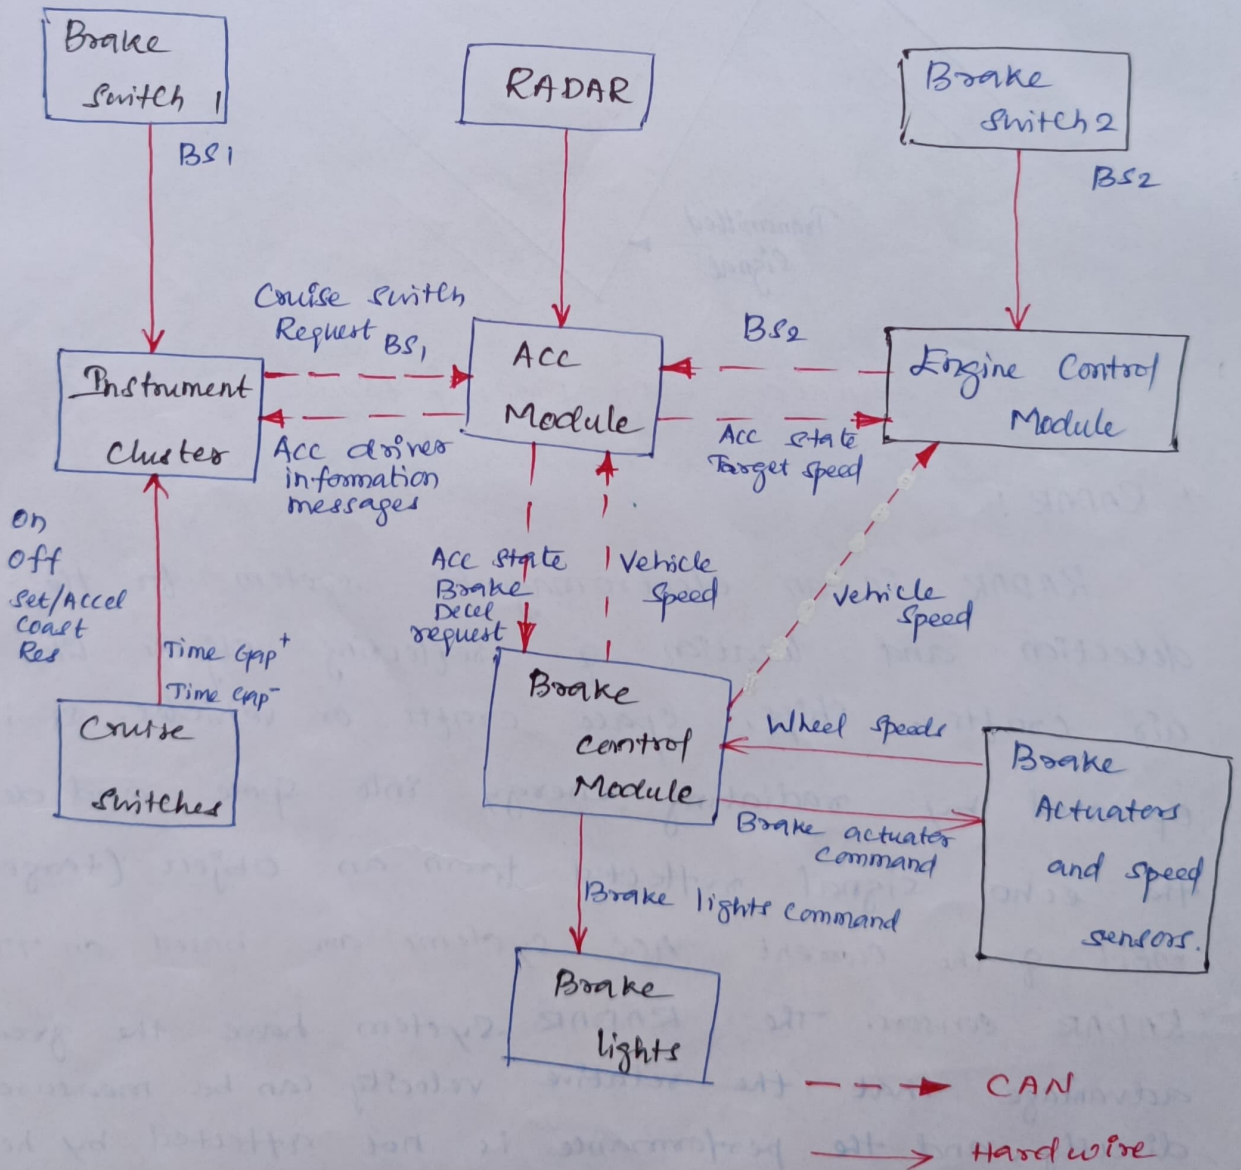 Brake
Switch 1
RADAR
Brake
Switch 2
BS1
BS2
Cruise Switch
Request BS1
BS2
Instrument
Cluster
ACC
Module
Engine Control
Module
Acc driver
information
messages
Acc state
Target speed
On
Off
Set/Accel
Coast
Res
Time Gap+
Time Gap-
Acc state
Brake
Decel
request
Vehicle
Speed
Vehicle
Speed
Cruise
Switches
Brake
Control
Module
Wheel speeds
Brake actuator
Command
Brake
Actuators
and speed
sensors.
Brake lights command
Brake
lights
CAN
Hardwire